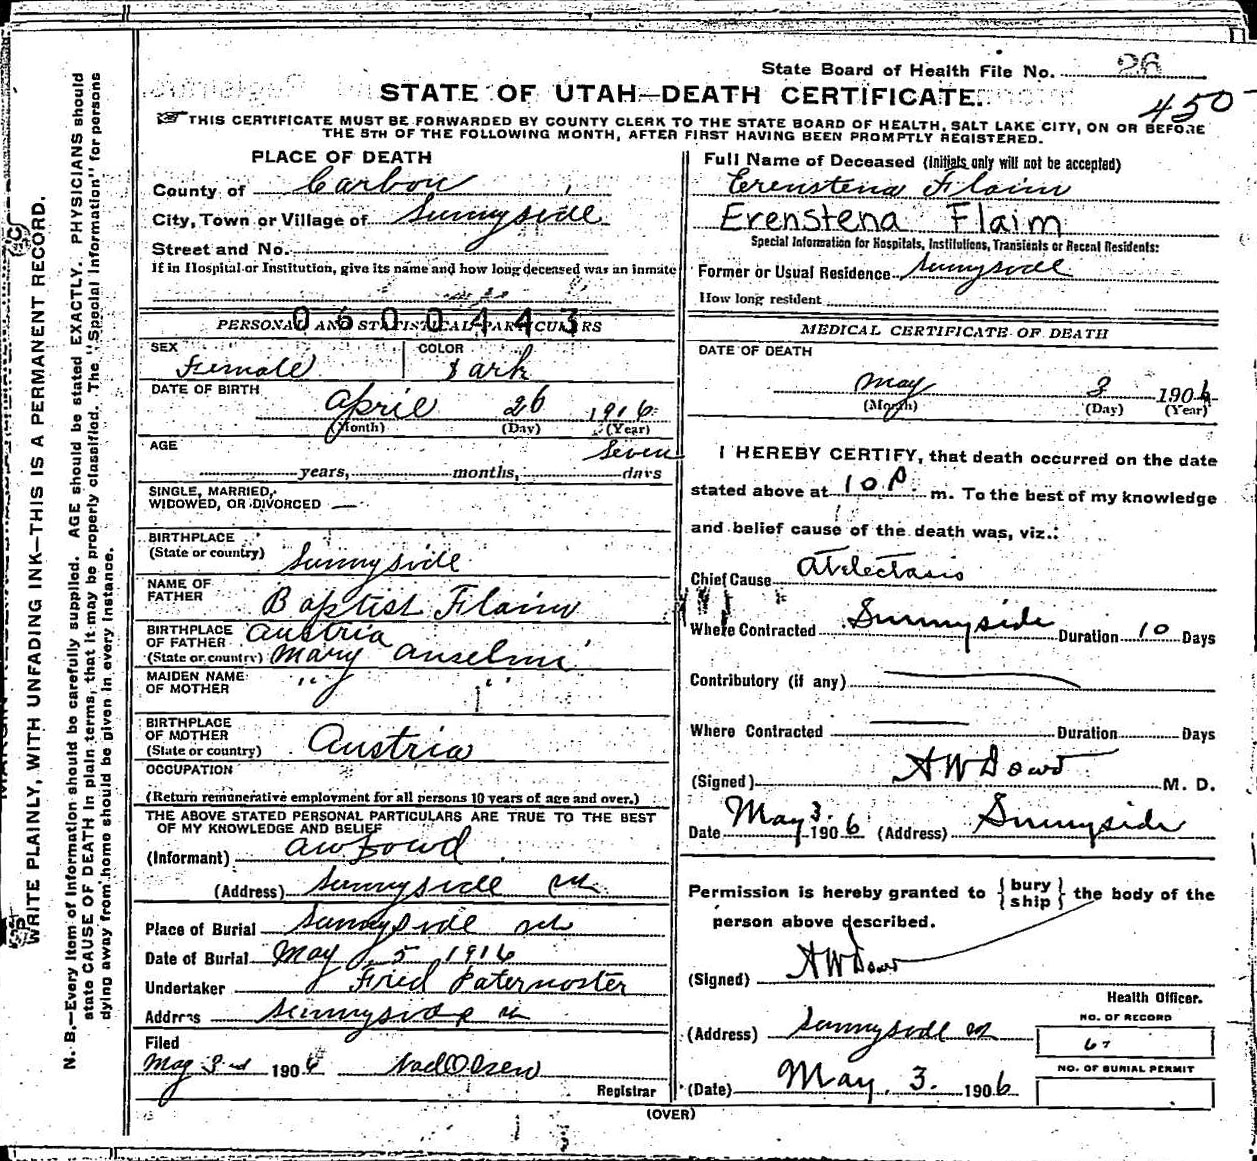 State Board of Health File No. 26
STATE OF UTAH—DEATH CERTIFICATE.
450
THIS CERTIFICATE MUST BE FORWARDED BY COUNTY CLERK TO THE STATE BOARD OF HEALTH, SALT LAKE CITY, ON OR BEFORE
THE 5TH OF THE FOLLOWING MONTH, AFTER FIRST HAVING BEEN PROMPTLY REGISTERED.
PLACE OF DEATH
County of Carbon
City, Town or Village of Sunnyside
Street and No.
If in Hospital or Institution, give its name and how long deceased was an inmate
0600443
PERSONAL AND STATISTICAL PARTICULARS
SEX
Female
COLOR
Dark
DATE OF BIRTH
April 26 1916
(Month) (Day) (Year)
AGE
Seven
years, months, days
SINGLE, MARRIED,
WIDOWED, OR DIVORCED —
BIRTHPLACE
(State or country) Sunnyside
NAME OF
FATHER Baptist Flaim
BIRTHPLACE
OF FATHER Austria
(State or country) Mary Anselmi
MAIDEN NAME
OF MOTHER " "
BIRTHPLACE
OF MOTHER
(State or country) Austria
OCCUPATION
(Return remunerative employment for all persons 10 years of age and over.)
THE ABOVE STATED PERSONAL PARTICULARS ARE TRUE TO THE BEST
OF MY KNOWLEDGE AND BELIEF
(Informant) AW Dowd
(Address) Sunnyside Ut
Place of Burial Sunnyside Ut
Date of Burial May 5 1916
Undertaker Fred Paternoster
Address Sunnyside Ut
Filed
May 3rd 1906
Registrar
Full Name of Deceased (Initials only will not be accepted)
Erenstena Flaim
Erenstena Flaim
Special Information for Hospitals, Institutions, Transients or Recent Residents:
Former or Usual Residence Sunnyside
How long resident
MEDICAL CERTIFICATE OF DEATH
DATE OF DEATH
May 3 1906
(Month) (Day) (Year)
I HEREBY CERTIFY, that death occurred on the date
stated above at 10 P m. To the best of my knowledge
and belief cause of the death was, viz.:
Chief Cause Atelectasis
Where Contracted Sunnyside Duration 10 Days
Contributory (if any)
Where Contracted Duration Days
(Signed) AW Dowd M. D.
Date May 3 1906 (Address) Sunnyside
Permission is hereby granted to {bury
ship} the body of the
person above described.
(Signed) AW Dowd
Health Officer.
(Address) Sunnyside Ut
(Date) May 3. 1906
NO. OF RECORD
67
NO. OF BURIAL PERMIT
(OVER)
WRITE PLAINLY, WITH UNFADING INK—THIS IS A PERMANENT RECORD.
N. B.—Every item of information should be carefully supplied. AGE should be stated EXACTLY. PHYSICIANS should
state CAUSE OF DEATH in plain terms, that it may be properly classified. The "Special Information" for persons
dying away from home should be given in every instance.